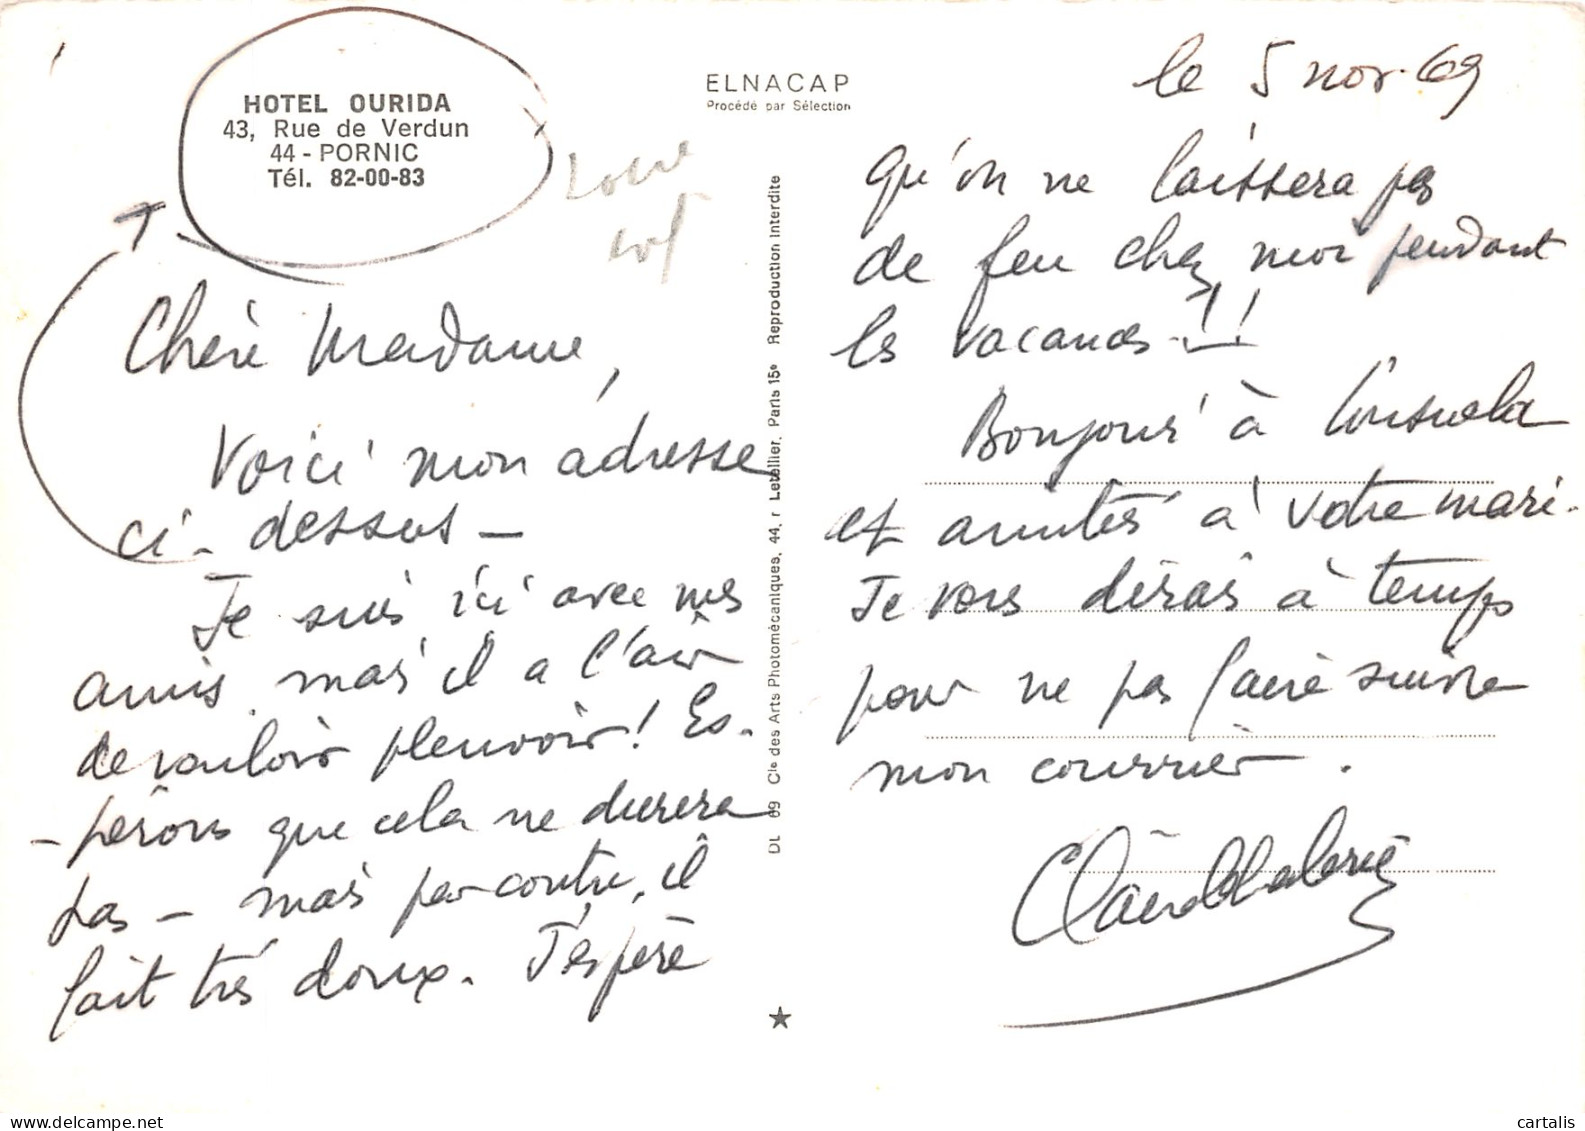 HOTEL OURIDA
43, Rue de Verdun
44 - PORNIC
Tél. 82-00-83
ELNACAP
Procédé par Sélection
Chère Madame,
Voici mon adresse
ci-dessus -
Je suis ici avec mes
amis mais il a l'air
de vouloir pleuvoir ! Es-
-pérons que cela ne durera
pas - mais par contre, il
fait très doux. J'espère
DL 69 Cie des Arts Photomécaniques, 44, r Letellier, Paris 15e Reproduction interdite
le 5 nov. 69
qu'on ne laissera pas
de feu chez moi pendant
les vacances - !!
Bonjour à Consuela
et amitiés à votre mari.
Je vous dirai à temps
pour ne pas faire suivre
mon courrier.
cartalis